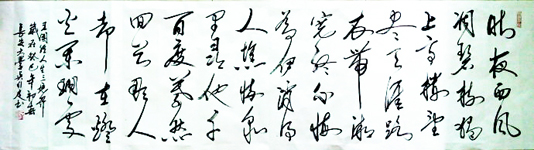 昨夜西风
凋碧树独
上高楼望
尽天涯路
衣带渐
宽终不悔
为伊消得
人憔悴众
里寻他千
百度蓦然
回首那人
却在灯
火阑珊处
王国维人生三境界